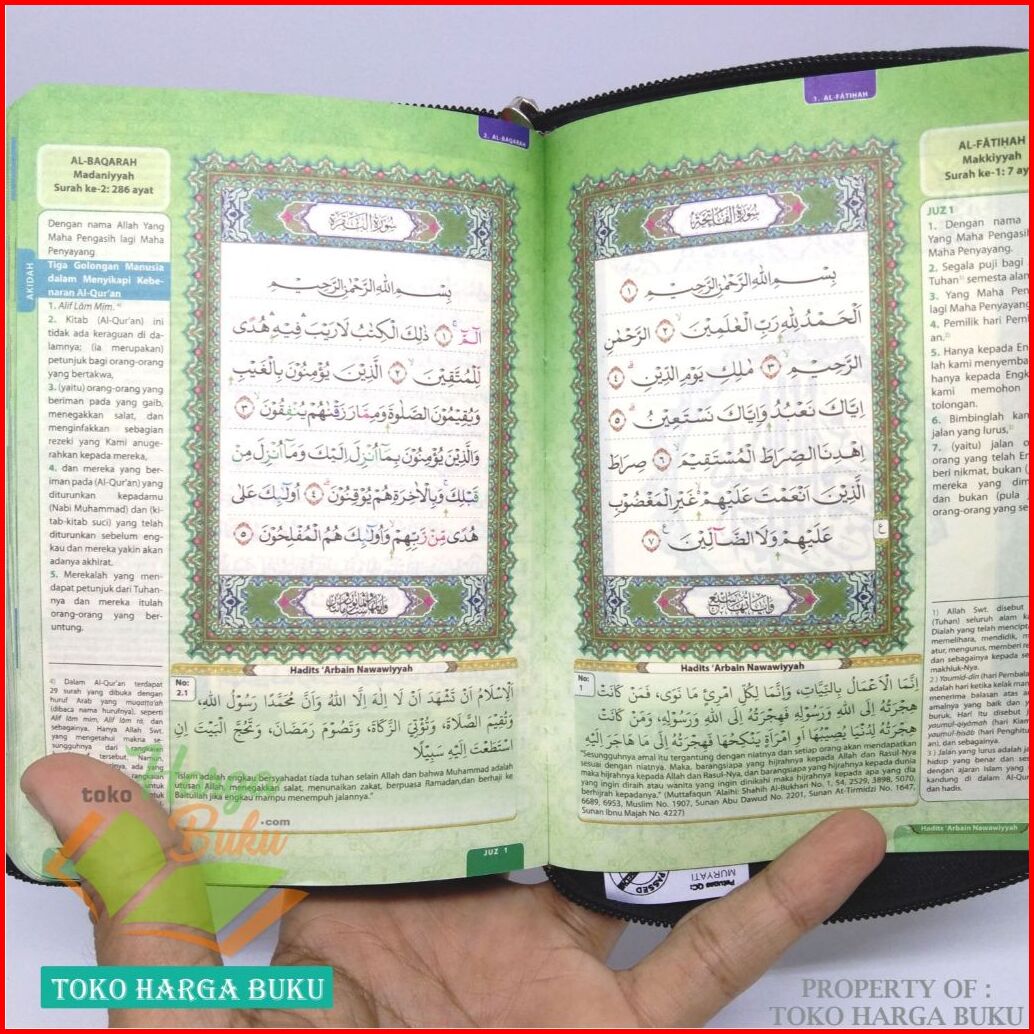 1. AL-FĀTIḤAH
AL-FĀTIḤAH
Makkiyyah
Surah ke-1: 7 ay
سُورَةُ الْفَاتِحَةِ
بِسْمِ اللّٰهِ الرَّحْمٰنِ الرَّحِيْمِ ۝١
اَلْحَمْدُ لِلّٰهِ رَبِّ الْعٰلَمِيْنَۙ ۝٢ الرَّحْمٰنِ
الرَّحِيْمِۙ ۝٣ مٰلِكِ يَوْمِ الدِّيْنِۗ ۝٤
اِيَّاكَ نَعْبُدُ وَاِيَّاكَ نَسْتَعِيْنُۗ ۝٥
اِهْدِنَا الصِّرَاطَ الْمُسْتَقِيْمَۙ ۝٦ صِرَاطَ
الَّذِيْنَ اَنْعَمْتَ عَلَيْهِمْ ەۙ غَيْرِ الْمَغْضُوْبِ
عَلَيْهِمْ وَلَا الضَّاۤلِّيْنَࣖ ۝٧
ع
JUZ 1
1. Dengan nama
Yang Maha Pengasi
Maha Penyayang.
2. Segala puji bagi
Tuhan¹⁾ semesta alam
3. Yang Maha Pen
lagi Maha Penyayang
4. Pemilik hari Pemb
an.²⁾
5. Hanya kepada En
lah kami menyemba
hanya kepada Engk
kami memohon
tolongan.
6. Bimbinglah kan
jalan yang lurus,³⁾
7. (yaitu) jalan o
orang yang telah En
beri nikmat, bukan (
mereka yang dim
dan bukan (pula
orang-orang yang se
1) Allah Swt. disebut
(Tuhan) seluruh alam ka
Dialah yang telah mencipt
memelihara, mendidik, m
atur, mengurus, memberi re
dan sebagainya kepada se
makhluk-Nya.
2) Yaumid-dīn (hari Pembala
adalah hari ketika kelak man
menerima balasan atas a
amalnya yang baik dan y
buruk. Hari itu disebut
yaumul-qiyāmah (hari Kiam
yaumul-ḥisāb (hari Penghitu
an), dan sebagainya.
3) Jalan yang lurus adalah
hidup yang benar dan ses
dengan ajaran Islam yang
kandung di dalam Al-Qur
dan hadis.
Hadits 'Arbain Nawawiyyah
No:
1
اِنَّمَا الْاَعْمَالُ بِالنِّيَّاتِ، وَاِنَّمَا لِكُلِّ امْرِئٍ مَا نَوَى، فَمَنْ كَانَتْ
هِجْرَتُهُ اِلَى اللهِ وَرَسُوْلِهِ فَهِجْرَتُهُ اِلَى اللهِ وَرَسُوْلِهِ، وَمَنْ كَانَتْ
هِجْرَتُهُ لِدُنْيَا يُصِيْبُهَا اَوِ امْرَأَةٍ يَنْكِحُهَا فَهِجْرَتُهُ اِلَى مَا هَاجَرَ اِلَيْهِ
"Sesungguhnya amal itu tergantung dengan niatnya dan setiap orang akan mendapatkan
sesuai dengan niatnya. Maka, barangsiapa yang hijrahnya kepada Allah dan Rasul-Nya
maka hijrahnya kepada Allah dan Rasul-Nya, dan barangsiapa yang hijrahnya kepada dunia
yang ingin diraih atau wanita yang ingin dinikahi maka hijrahnya kepada apa yang dia
berhijrah kepadanya." (Muttafaqun 'Alaihi: Shahih Al-Bukhari No. 1, 54, 2529, 3898, 5070,
6689, 6953, Muslim No. 1907, Sunan Abu Dawud No. 2201, Sunan At-Tirmidzi No. 1647,
Sunan Ibnu Majah No. 4227)
Hadits 'Arbain Nawawiyyah
2. AL-BAQARAH
AL-BAQARAH
Madaniyyah
Surah ke-2: 286 ayat
سُورَةُ الْبَقَرَةِ
بِسْمِ اللّٰهِ الرَّحْمٰنِ الرَّحِيْمِ
الۤمّۤۚ ۝١ ذٰلِكَ الْكِتٰبُ لَا رَيْبَۛ فِيْهِۛ هُدًى
لِّلْمُتَّقِيْنَۙ ۝٢ الَّذِيْنَ يُؤْمِنُوْنَ بِالْغَيْبِ
وَيُقِيْمُوْنَ الصَّلٰوةَ وَمِمَّا رَزَقْنٰهُمْ يُنْفِقُوْنَۙ ۝٣
وَالَّذِيْنَ يُؤْمِنُوْنَ بِمَآ اُنْزِلَ اِلَيْكَ وَمَآ اُنْزِلَ مِنْ
قَبْلِكَۚ وَبِالْاٰخِرَةِ هُمْ يُوْقِنُوْنَۗ ۝٤ اُولٰۤىِٕكَ عَلٰى
هُدًى مِّنْ رَّبِّهِمْۙ وَاُولٰۤىِٕكَ هُمُ الْمُفْلِحُوْنَ ۝٥
AKIDAH
Dengan nama Allah Yang
Maha Pengasih lagi Maha
Penyayang
Tiga Golongan Manusia
dalam Menyikapi Kebe-
naran Al-Qur'an
1. Alif Lām Mīm. ⁴⁾
2. Kitab (Al-Qur'an) ini
tidak ada keraguan di da-
lamnya; (ia merupakan)
petunjuk bagi orang-orang
yang bertakwa,
3. (yaitu) orang-orang yang
beriman pada yang gaib,
menegakkan salat, dan
menginfakkan sebagian
rezeki yang Kami anuge-
rahkan kepada mereka,
4. dan mereka yang ber-
iman pada (Al-Qur'an) yang
diturunkan kepadamu
(Nabi Muhammad) dan (ki-
tab-kitab suci) yang telah
diturunkan sebelum eng-
kau dan mereka yakin akan
adanya akhirat.
5. Merekalah yang men-
dapat petunjuk dari Tuhan-
nya dan mereka itulah
orang-orang yang ber-
untung.
4) Dalam Al-Qur'an terdapat
29 surah yang dibuka dengan
huruf Arab yang muqaṭṭa'ah
(dibaca nama hurufnya), seperti
Alif lām mīm, Alif lām rā, dan
sebagainya. Hanya Allah Swt.
yang mengetahui makna se-
sungguhnya dari rangkaian
tersebut. Namun,
ada yang
rangkaian
untuk
Hadits 'Arbain Nawawiyyah
No:
2.1
اَلْاِسْلَامُ اَنْ تَشْهَدَ اَنْ لَا اِلٰهَ اِلَّا اللهُ وَاَنَّ مُحَمَّدًا رَسُوْلُ اللهِ،
وَتُقِيْمَ الصَّلَاةَ، وَتُؤْتِيَ الزَّكَاةَ، وَتَصُوْمَ رَمَضَانَ، وَتَحُجَّ الْبَيْتَ اِنِ
اسْتَطَعْتَ اِلَيْهِ سَبِيْلًا
"Islam adalah engkau bersyahadat tiada tuhan selain Allah dan bahwa Muhammad adalah
utusan Allah, menegakkan salat, menunaikan zakat, berpuasa Ramadan, dan berhaji ke
Baitullah jika engkau mampu menempuh jalannya."
JUZ 1
toko
Harga
Buku
.com
PASSED
Petugas QC:
MURYATI
TOKO HARGA BUKU
PROPERTY OF :
TOKO HARGA BUKU